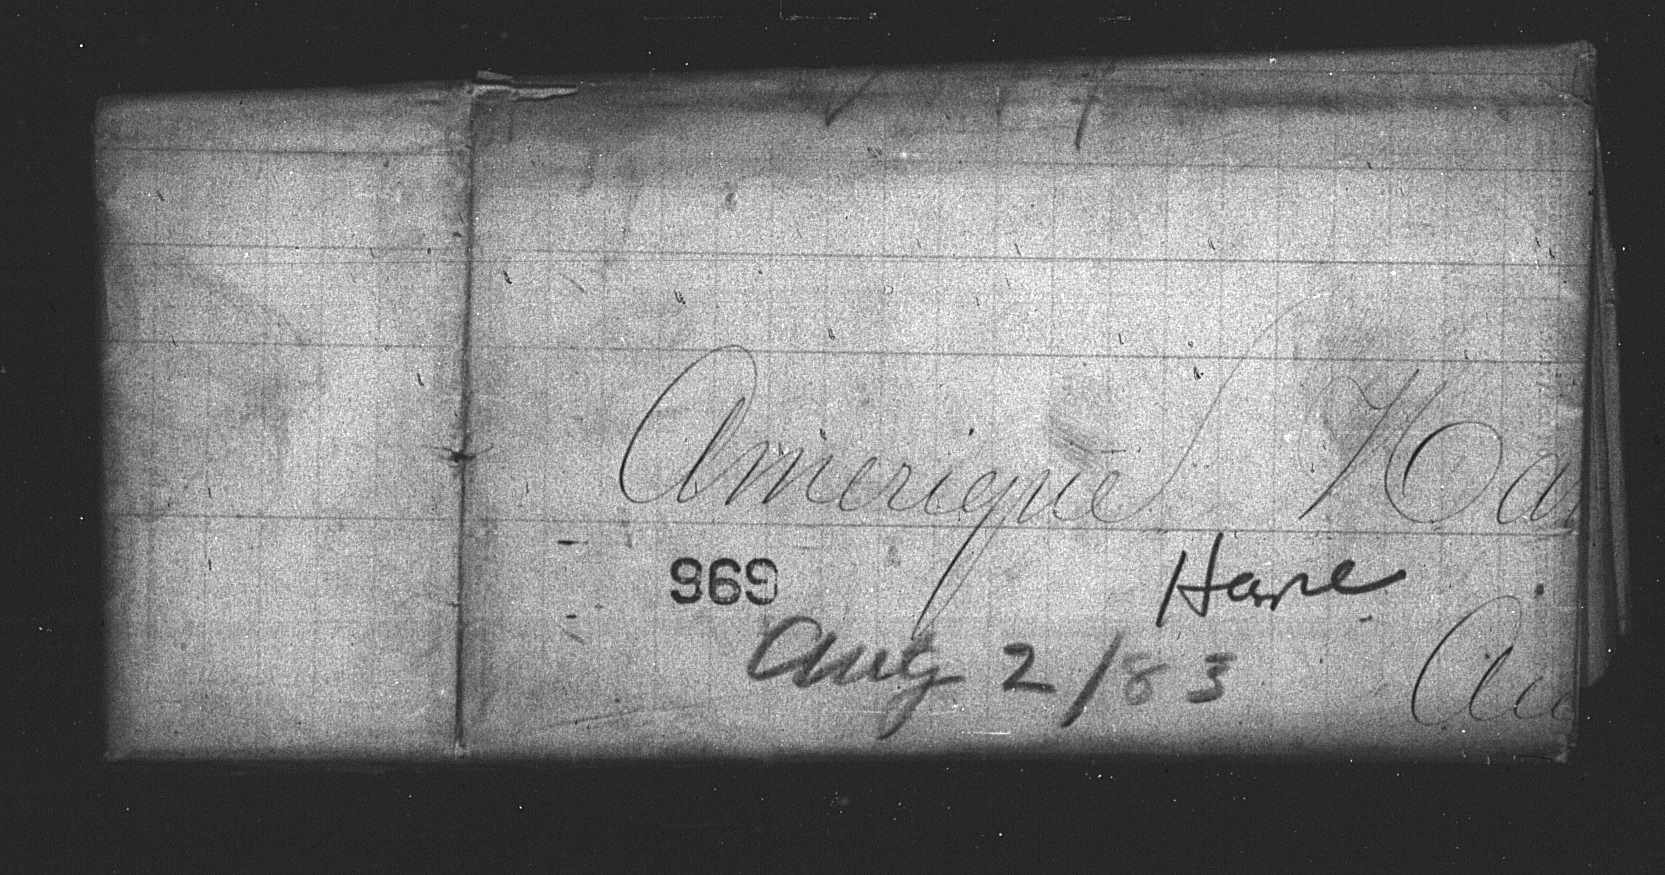 Amerique Ha
969 Hare
Aug 2/83
Au